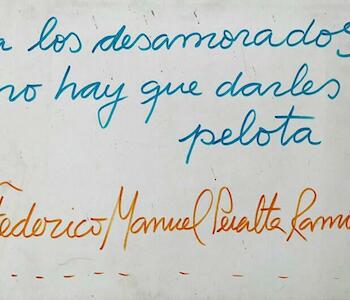 a los desamorados
no hay que darles
pelota
Federico Manuel Peralta Ramos